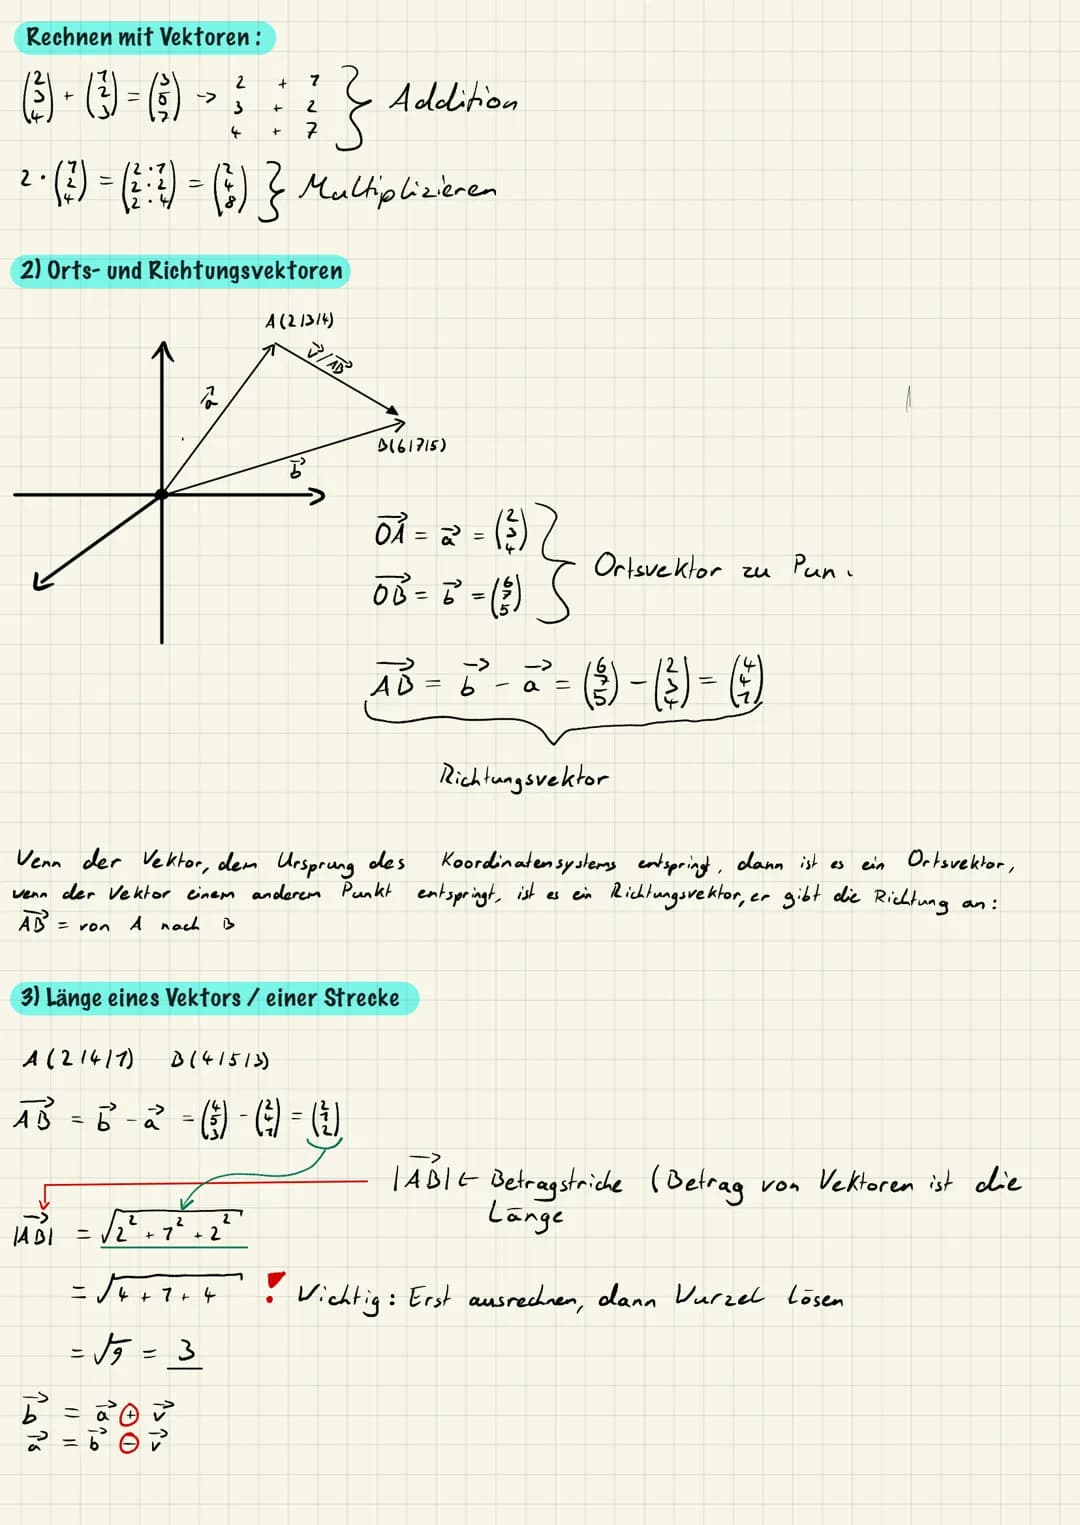 Rechnen mit Vektoren :
(2 3 4) + (1 2 3) = (3 5 7) -> 2 + 1
3 + 2
4 + 1
} Addition
2 · (1 2 4) = (2·1 2·2 2·4) = (2 4 8) } Multiplizieren
2) Orts- und Richtungsvektoren
A(2|3|4)
v⃗/AB⃗
a⃗
B(6|7|5)
b⃗
OA⃗ = a⃗ = (2 3 4)
OB⃗ = b⃗ = (6 7 5)
} Ortsvektor zu Pun.
AB⃗ = b⃗ - a⃗ = (6 7 5) - (2 3 4) = (4 4 1)
Richtungsvektor
Wenn der Vektor, dem Ursprung des Koordinatensystems entspringt, dann ist es ein Ortsvektor,
wenn der Vektor einem anderem Punkt entspringt, ist es ein Richtungsvektor, er gibt die Richtung an:
AB⃗ = von A nach B
3) Länge eines Vektors / einer Strecke
A(2|4|1) B(4|5|3)
AB⃗ = b⃗ - a⃗ = (4 5 3) - (2 4 1) = (2 1 2)
|AB⃗| ← Betragstriche (Betrag von Vektoren ist die
Länge
|AB⃗| = √2² + 1² + 2²
= √4 + 1 + 4 ! Wichtig: Erst ausrechnen, dann Wurzel lösen
= √9 = 3
b⃗ = a⃗ ⊕ v⃗
a⃗ = b⃗ ⊖ v⃗